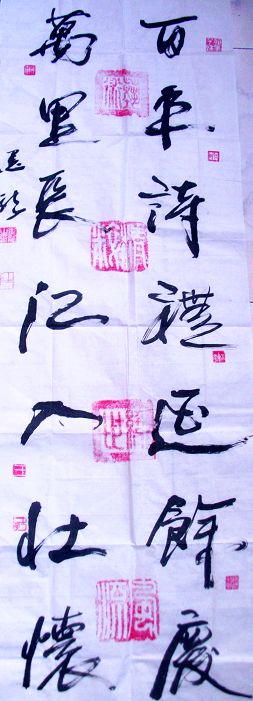 百年詩禮延餘慶
萬里長江入壯懷